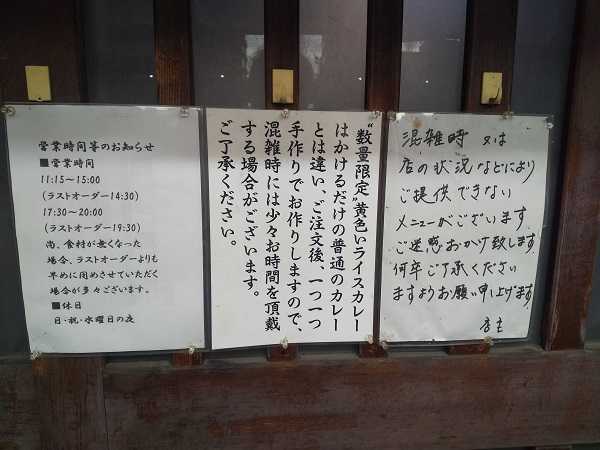 営業時間等のお知らせ
■営業時間
11:15～15:00
(ラストオーダー14:30)
17:30～20:00
(ラストオーダー19:30)
尚、食材が無くなった
場合、ラストオーダーよりも
早めに閉めさせていただく
場合が多々ございます。
■休日
日・祝・水曜日の夜
"数量限定"黄色いライスカレー
はかけるだけの普通のカレー
とは違い、ご注文後、一つ一つ
手作りでお作りしますので、
混雑時には少々お時間を頂戴
する場合がございます。
ご了承ください。
混雑時 又は
店の状況などにより
ご提供できない
メニューがございます
ご迷惑おかけ致します
何卒ご了承ください
ますようお願い申し上げます
店主